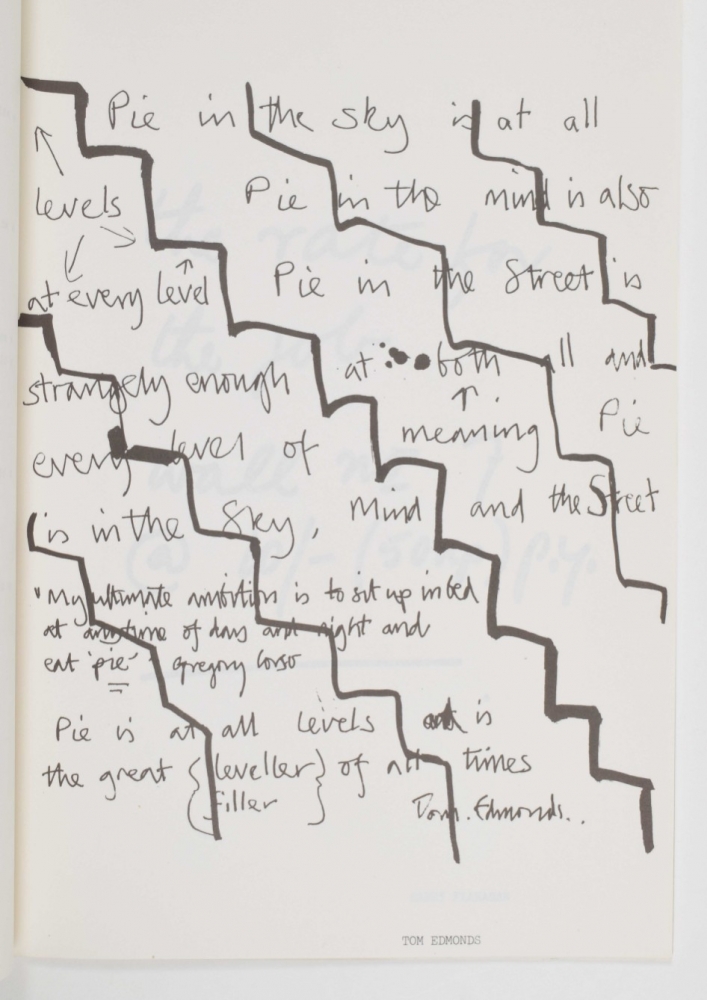 Pie in the sky is at all
levels Pie in the mind is also
at every level Pie in the Street is
strangely enough at both all and
meaning Pie
every level of
is in the Sky, Mind and the Street
"My ultimate ambition is to sit up in bed
at anytime of day and night and
eat 'pie'" Gregory Corso
Pie is at all levels is
the great {leveller} of all times
filler
Tom. Edmonds..
TOM EDMONDS